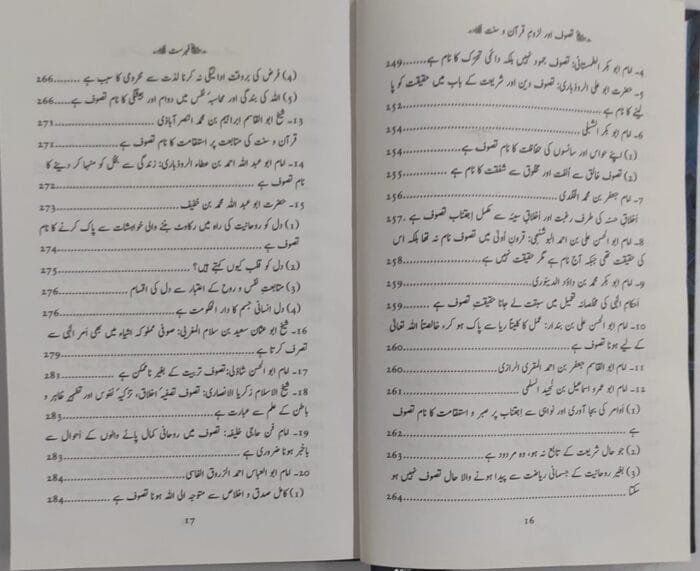 تصوف اور لزومِ قرآن و سنت
4۔ امام ابو بکر الطمستانی: تصوف جمود نہیں بلکہ دائمی تحرک کا نام ہے 249
5۔ حضرت ابو علی الروذباری: تصوف دین اور شریعت کے باب میں حقیقت کو پا
لینے کا نام ہے 252
6۔ امام ابو بکر الشبلی 254
(1) اپنے حواس اور سانسوں کی حفاظت کا نام تصوف ہے 254
(2) تصوف خالق سے اُلفت اور مخلوق سے شفقت کا نام ہے 255
7۔ امام جعفر بن محمد الخلدی 256
اخلاقِ حسنہ کی طرف رغبت اور اخلاقِ سیئہ سے مکمل اِجتناب تصوف ہے 257
8۔ امام ابو الحسن علی بن احمد البوشنجی: قرونِ اُولیٰ میں تصوف نام نہ تھا بلکہ اس
کی حقیقت تھی جبکہ آج نام ہے مگر حقیقت نہیں ہے 258
9۔ امام ابو بکر محمد بن داؤد الدینوری 259
اَحکامِ الٰہی کی مخلصانہ تعمیل میں سبقت لے جانا حقیقتِ تصوف ہے 259
10۔ امام ابو الحسن علی بن بندار: عمل کا کلیتاً ریا سے پاک ہو کر، خالصتاً اللہ تعالیٰ
کے لیے ہونا تصوف ہے 260
11۔ امام ابو القاسم جعفر بن احمد المقری الرازی 260
12۔ امام ابو عمرو اسماعیل بن نجید السلمی 261
(1) اَوامر کی بجا آوری اور نواہی سے اِجتناب پر صبر و استقامت کا نام تصوف
ہے 262
(2) جو حال شریعت کے تابع نہ ہو، وہ مردود ہے 263
(3) بغیر روحانیت کے جسمانی ریاضت سے پیدا ہونے والا حال تصوف نہیں ہو
سکتا 264
16
فہرست
(4) فرض کی بروقت ادائیگی نہ کرنا لذت سے محرومی کا سبب ہے 266
(5) اللہ کی بندگی اور محاسبۂ نفس میں دوام اور ہمیشگی کا نام تصوف ہے 266
13۔ شیخ ابو القاسم ابراہیم بن محمد النصر آباذی 271
قرآن و سنت کی متابعت پر استقامت کا نام تصوف ہے 271
14۔ امام ابو عبد اللہ احمد بن عطاء الروذباری: زندگی سے بخل کو منہا کر دینے کا
نام تصوف ہے 272
15۔ حضرت ابو عبد اللہ محمد بن خفیف 273
(1) دل کو روحانیت کی راہ میں رکاوٹ بننے والی خواہشات سے پاک کرنے کا نام
تصوف ہے 274
(2) دل کو قلب کیوں کہتے ہیں؟ 275
(3) متابعتِ نفس و روح کے اعتبار سے دل کی اقسام 276
(4) دل انسانی جسم کا دار الحکومت ہے 276
16۔ شیخ ابو عثمان سعید بن سلام المغربی: صوفی مملوکہ اشیاء میں بھی اَمرِ الٰہی سے
تصرف کرتا ہے 279
17۔ امام ابو الحسن شاذلی: تصوف تربیت کے بغیر ناممکن ہے 281
18۔ شیخ الاسلام زکریا الانصاری: تصوف تصفیۂ اخلاق، تزکیۂ نفوس اور تطہیرِ ظاہر و
باطن کے علم سے عبارت ہے 283
19۔ امامِ فن حاجی خلیفہ: تصوف میں روحانی کمال پانے والوں کے اَحوال سے
باخبر ہونا ضروری ہے 283
20۔ امام ابو العباس احمد الزروق الفاسی 284
(1) کامل صدق و اخلاص سے متوجہ الی اللہ ہونا تصوف ہے 284
17